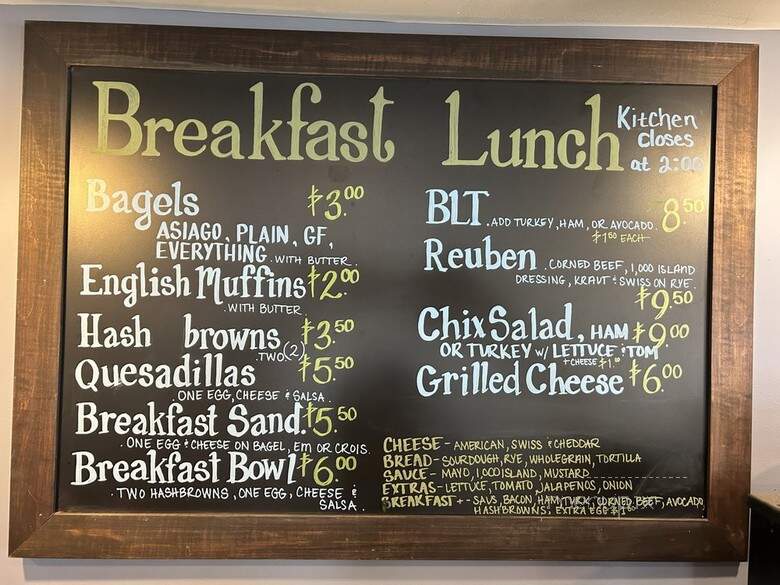 Breakfast
Bagels $3.00
ASIAGO, PLAIN, GF,
EVERYTHING. WITH BUTTER.
English Muffins $2.00
. WITH BUTTER
Hash browns $3.50
. TWO (2)
Quesadillas $5.50
. ONE EGG, CHEESE & SALSA.
Breakfast Sand. $5.50
. ONE EGG & CHEESE ON BAGEL, EM OR CROIS.
Breakfast Bowl $6.00
. TWO HASHBROWNS, ONE EGG, CHEESE &
SALSA.
Lunch
Kitchen
closes
at 2:00
BLT . ADD TURKEY, HAM, OR AVOCADO. 8.50
EACH
Reuben . CORNED BEEF, 1,000 ISLAND
DRESSING, KRAUT & SWISS ON RYE.
$9.50
Chix Salad, HAM $9.00
OR TURKEY W/ LETTUCE & TOM
+ CHEESE
Grilled Cheese $6.00
CHEESE - AMERICAN, SWISS & CHEDDAR
BREAD - SOURDOUGH, RYE, WHOLEGRAIN, TORTILLA
SAUCE - MAYO, 1,000 ISLAND, MUSTARD
EXTRAS - LETTUCE, TOMATO, JALAPENOS, ONION
BREAKFAST + - SAUS, BACON, HAM, TURK, CORNED BEEF, AVOCADO
HASHBROWNS, EXTRA EGG